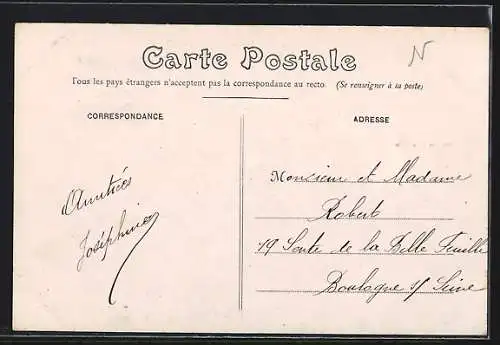 Carte Postale
N
Tous les pays étrangers n'acceptent pas la correspondance au recto (Se renseigner à la poste)
CORRESPONDANCE
ADRESSE
Amitiés
Joséphine
Monsieur et Madame
Robert
19 Sente de la Belle Feuille
Boulogne s/ Seine